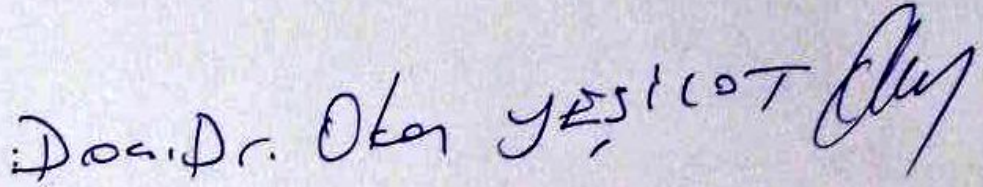 Doç.Dr. Okan YEŞİLOT